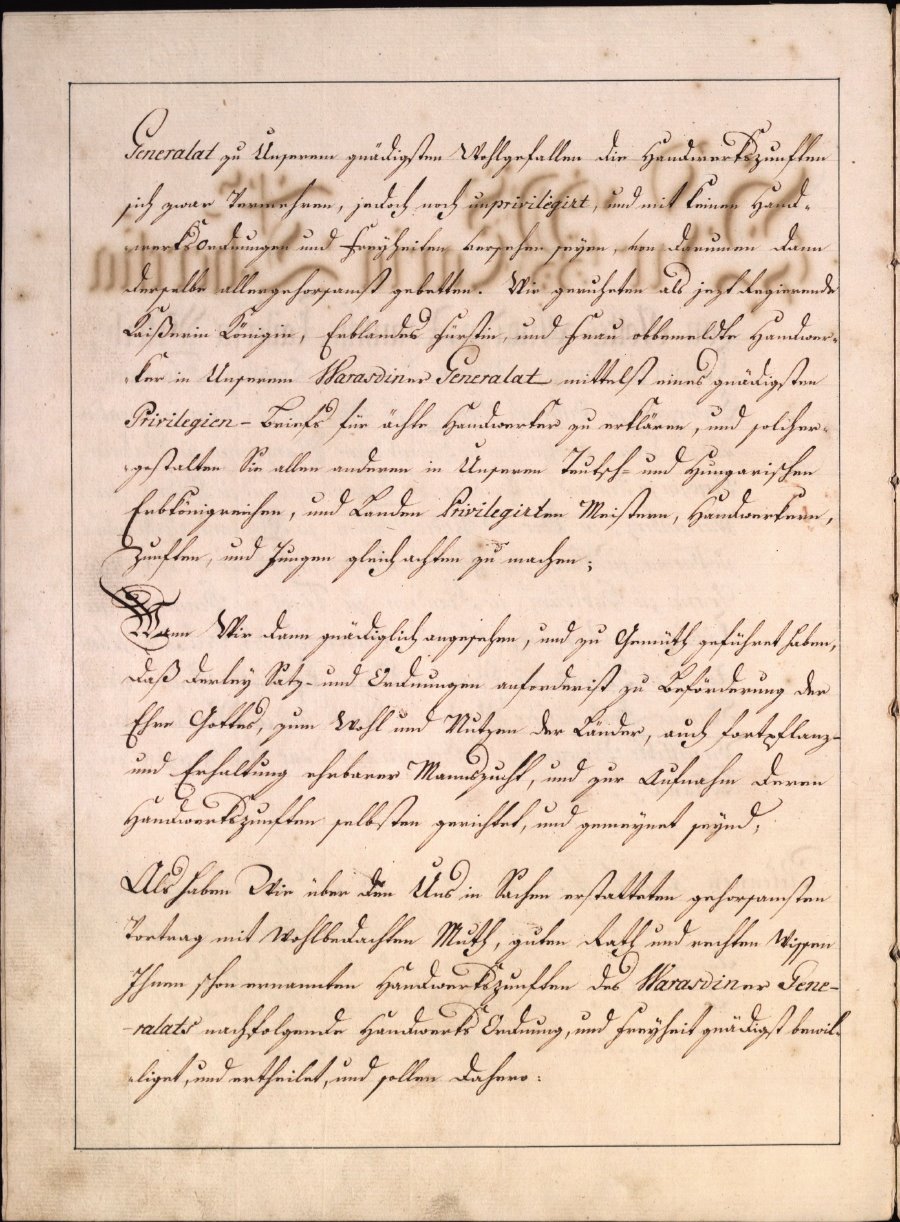 Generalat zu Unserem gnädigsten Wohlgefallen die Handwerkszunften
sich zwar Vermehren, jedoch noch unprivilegirt, und mit keinen Hand-
-werksOrdnungen und Freyheiten versehen seyen, von darumen dann
derselbe allergehorsamst gebetten. Wir geruheten als jezt Regierende
Kaißerin Königin, Erblandes Fürstin, und Frau obbemeldte Handwer-
-ker in Unserem Warasdiner Generalat mittelst eines gnädigsten
Privilegien-Briefs für ächte Handwerker zu erklären, und solcher-
-gestalten Sie allen anderen in Unseren Teutsch- und Hungarischen
Erbkönigreichen, und Landen Privilegirten Meistern, Handwerkern,
Zunften, und Jungen gleich achten zu machen;
Wann Wir dann gnädiglich angesehen, und zu Gemüth geführet haben,
daß derley Satz- und Ordnungen anforderist zu Beförderung der
Ehre Gottes, zum Wohl und Nutzen der Länder, auch Fortpflanz-
und Erhaltung ehrbarer Mannszucht, und zur Aufnahm deren
Handwerkszunften selbsten gerichtet, und gemeynet seynd,
Als haben Wir über den Uns in Sachen erstatteten gehorsamsten
Vortrag mit Wohlbedachten Muth, guten Rath und rechten Wissen
Ihnen schon ernannten Handwerkszunften des Warasdiner Gene-
-ralats nachfolgende Handwerks Ordnung, und Freyheit gnädigst bewil-
-liget, und ertheilet, und sollen dahero: